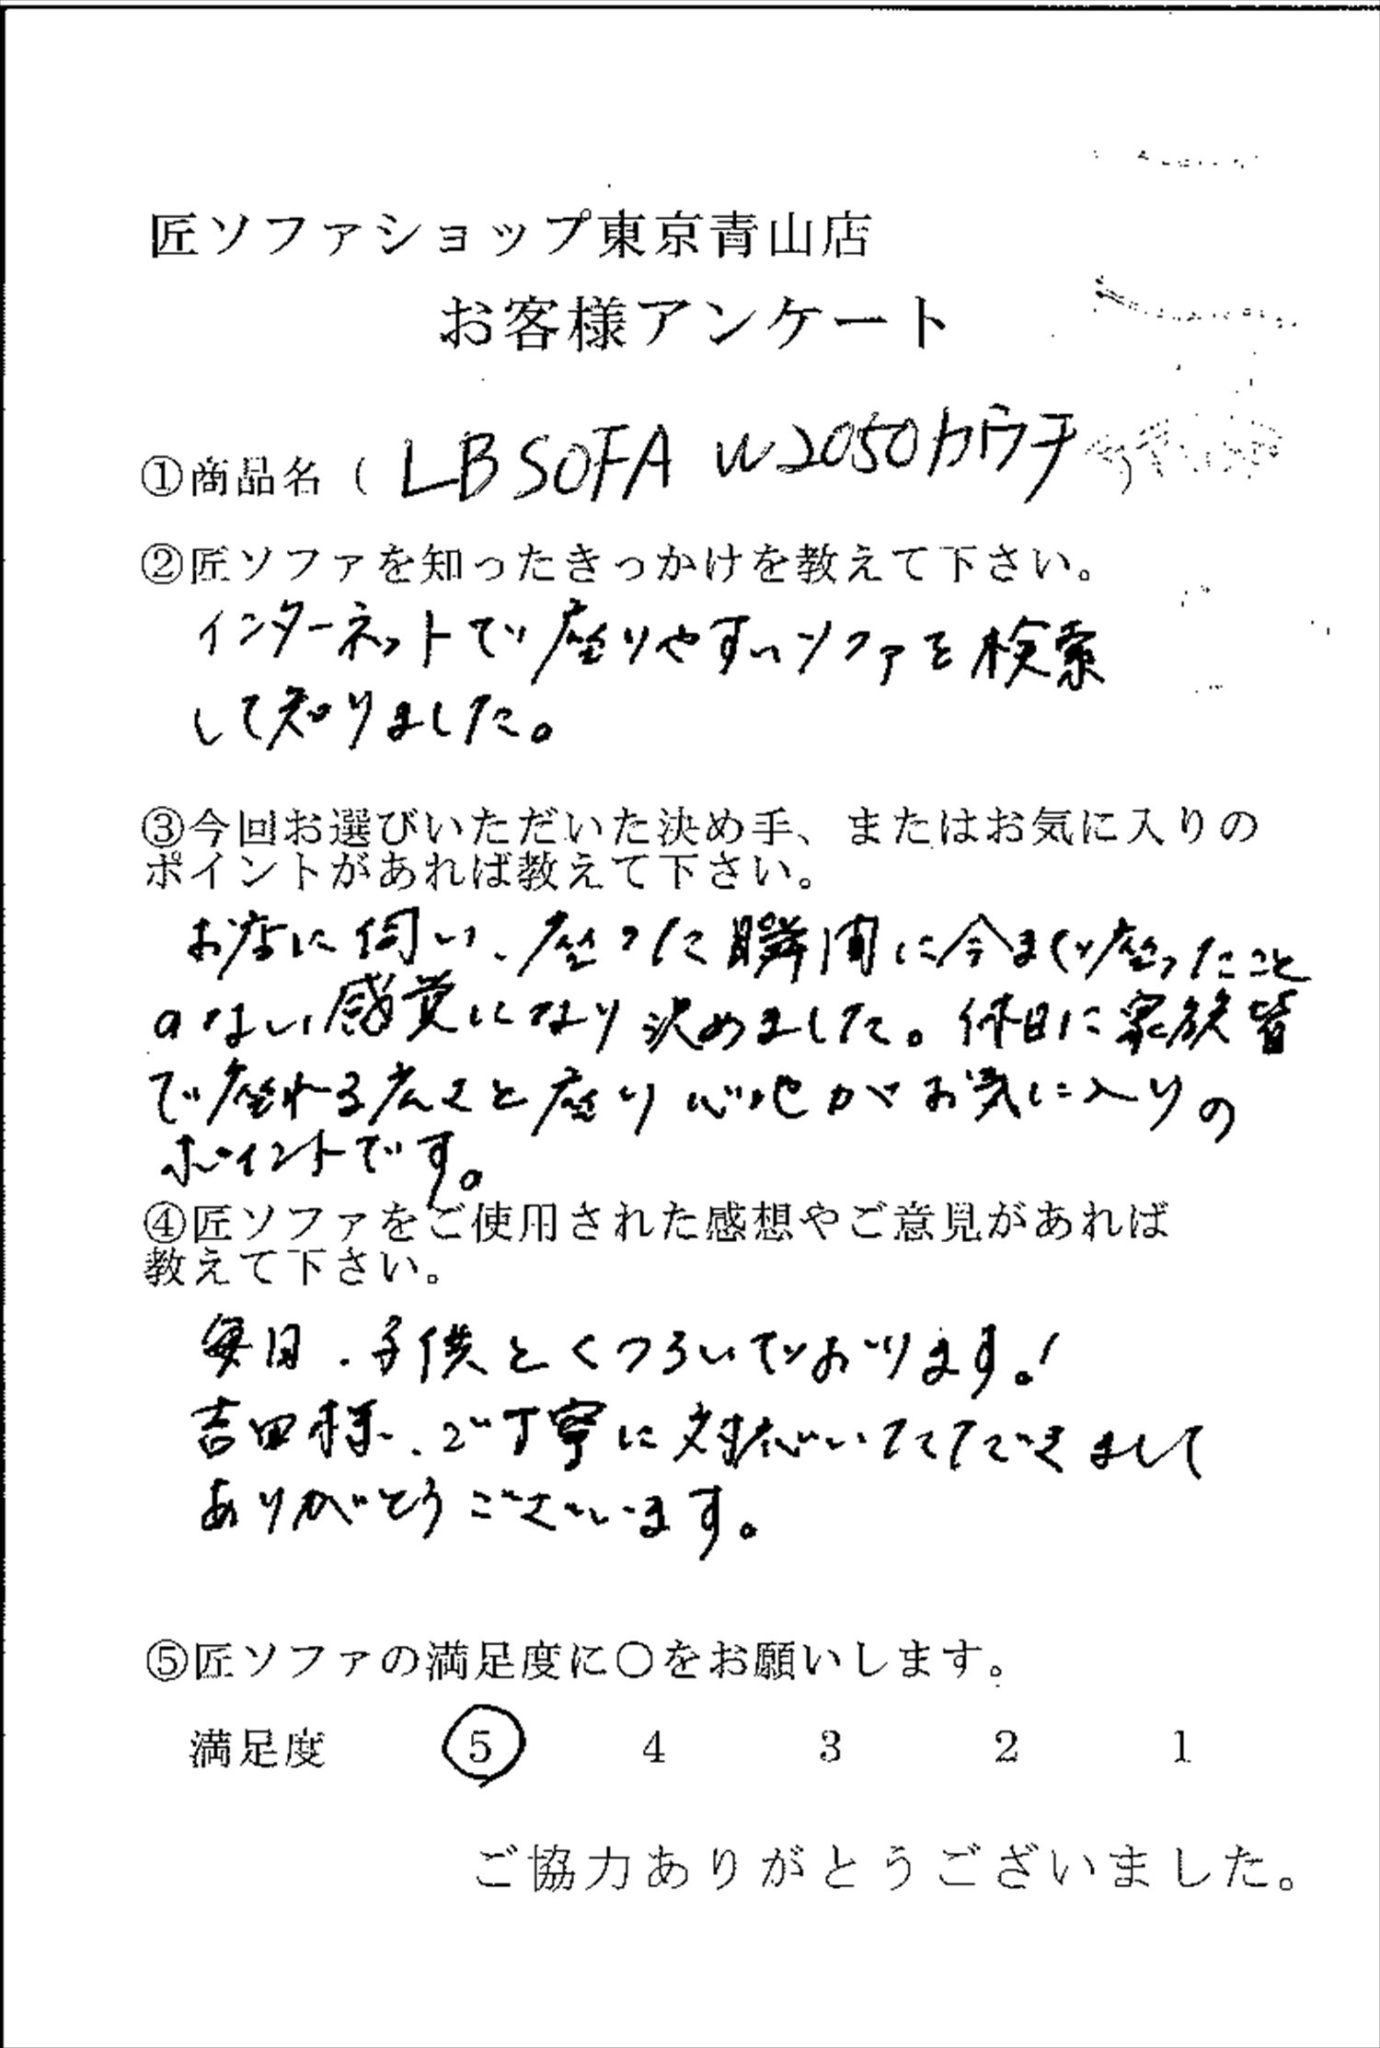 匠ソファショップ東京青山店
お客様アンケート
①商品名（ LBSOFA W2050カウチ ）
②匠ソファを知ったきっかけを教えて下さい。
インターネットで座りやすいソファを検索
して知りました。
③今回お選びいただいた決め手、またはお気に入りの
ポイントがあれば教えて下さい。
お店に伺い、座った瞬間に今まで座ったこと
のない感覚になり決めました。休日に家族皆
で座れる広さと座り心地がお気に入りの
ポイントです。
④匠ソファをご使用された感想やご意見があれば
教えて下さい。
毎日、子供とくつろいでおります。!
吉田様、ご丁寧に対応いただきまして
ありがとうございます。
⑤匠ソファの満足度に〇をお願いします。
満足度 5 4 3 2 1
ご協力ありがとうございました。